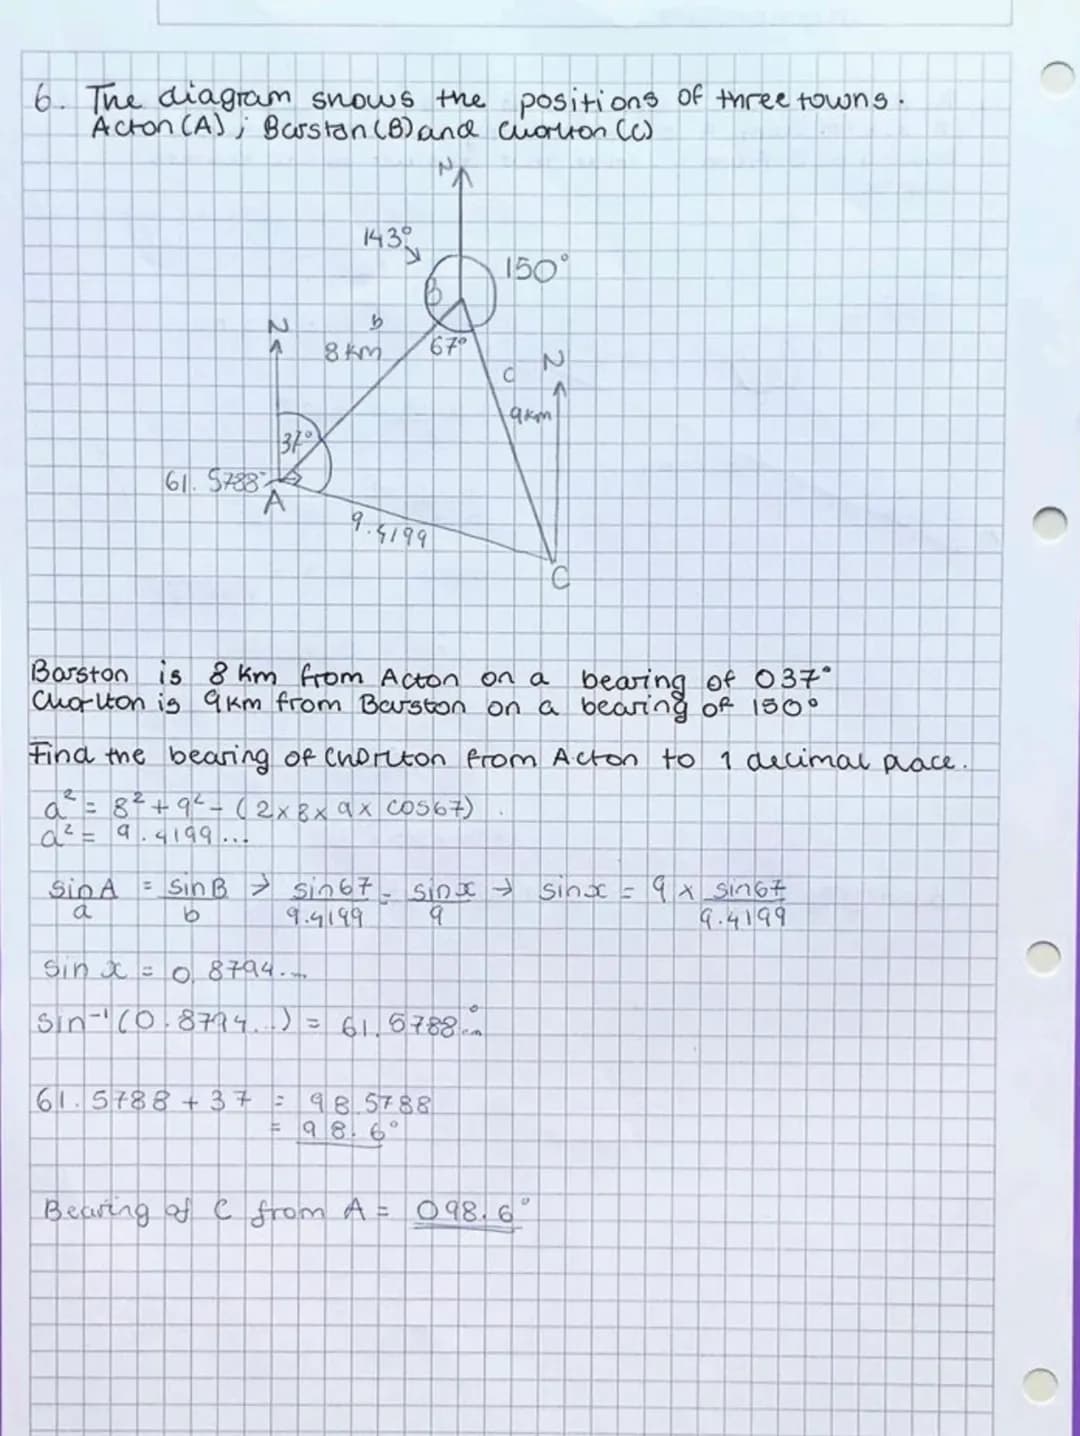 6. The diagram shows the positions of three towns.
Acton (A); Barston (B) and Chorlton (C)
N
143°
150°
B
N
b
8 km
67°
C
N
9km
37°
61.5788°
A
9.4199
C
Barston is 8 km from Acton on a bearing of 037°
Chorlton is 9km from Barston on a bearing of 150°
Find the bearing of Chorlton from Acton to 1 decimal place.
a² = 8² + 9² - (2 x 8 x 9 x cos67)
a² = 9.4199...
sin A/a = sin B/b → sin 67/9.4199 = sin x/9 → sin x = 9 x sin 67/9.4199
sin x = 0.8794...
sin⁻¹(0.8794...) = 61.5788...°
61.5788 + 37 = 98.5788
= 98.6°
Bearing of C from A = 098.6°